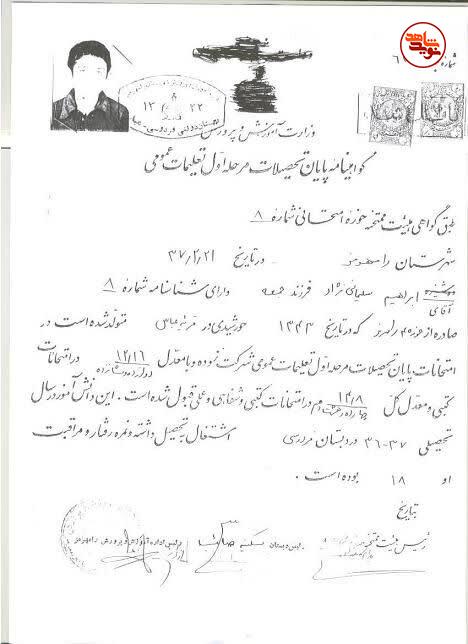 نوید شاهد
شماره ۶
۱۳ / ۸ / ۲۳
دبستان دولتی فردوسی
وزارت آموزش و پرورش
گواهینامه پایان تحصیلات مرحله اول تعلیمات عمومی
طبق گواهی هیئت ممتحنه حوزه امتحانی شماره ۸
شهرستان رامهرمز و در تاریخ ۳۷/۲/۲۱
دوشیزه
آقای ابراهیم سلیمانی نژاد فرزند جمعه دارای شناسنامه شماره ۸
صادره از حوزه رامهرمز که در تاریخ ۱۳۴۳ خورشیدی در متولد شده است در
امتحانات پایان تحصیلات مرحله اول تعلیمات عمومی شرکت نموده و با معدل ۱۲/۱۶ در امتحانات
کتبی و معدل کل ۱۴/۸ در امتحانات کتبی و شفاهی و عملی قبول شده است. این دانش آموز در سال
تحصیلی ۳۷-۳۶ در دبستان اشتغال به تحصیل داشته و نمره رفتار و مراقبت
او ۱۸ بوده است.
بتاریخ
رئیس هیئت ممتحنه رئیس دبستان رئیس اداره آموزش و پرورش رامهرمز